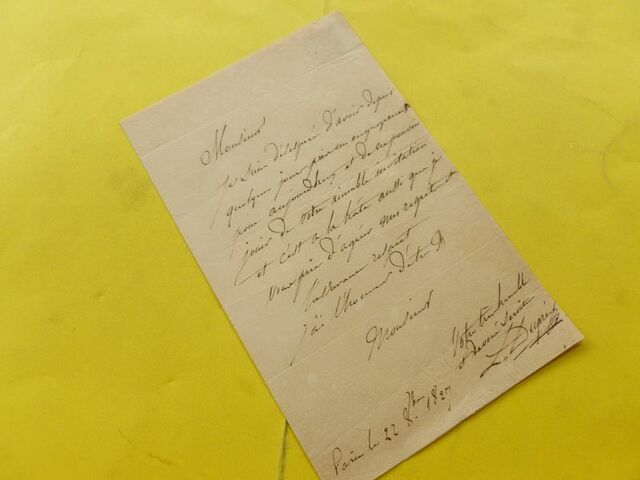 Monsieur
Je suis désespéré d'avoir depuis
quelques jours pris un engagement
pour aujourd'hui et de ne pouvoir
jouir de votre aimable invitation
et c'est a la hâte aussi que je
vous prie d'agréer mes regrets et
respect
j'ai l'honneur d'être
Monsieur
Votre très humble
et dévoué serviteur
Dupré
Paris le 22 8bre 1827